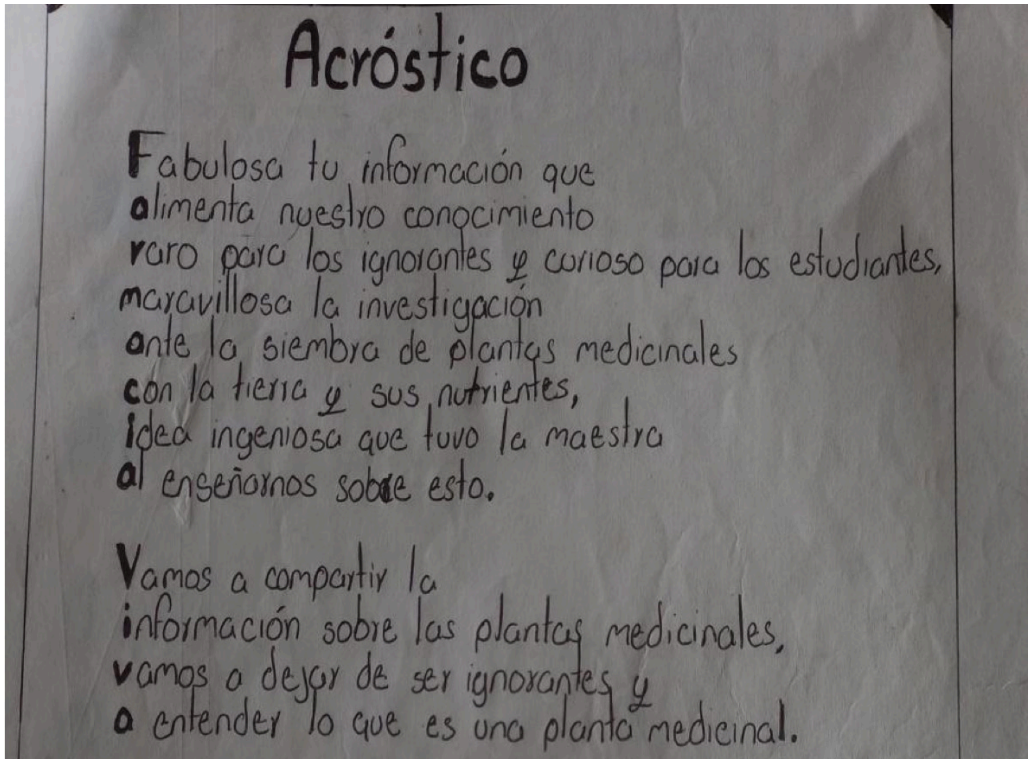 Acróstico
Fabulosa tu información que
alimenta nuestro conocimiento
raro para los ignorantes y curioso para los estudiantes,
maravillosa la investigación
ante la siembra de plantas medicinales
con la tierra y sus nutrientes,
idea ingeniosa que tuvo la maestra
al enseñarnos sobre esto.
Vamos a compartir la
información sobre las plantas medicinales,
vamos a dejar de ser ignorantes y
a entender lo que es una planta medicinal.